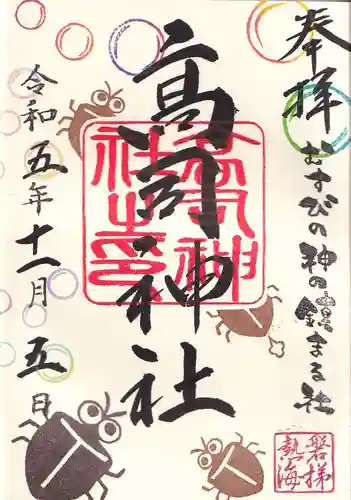 奉拝
むすびの神の鎮まる社
高司神社
令和五年十一月五日
磐梯
熱海